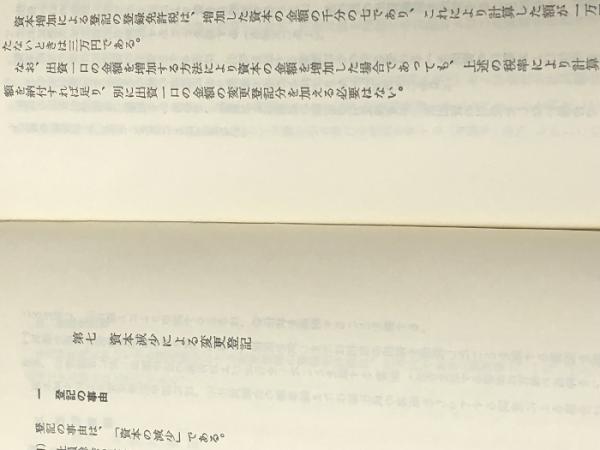 資本増加による登記の登録免許税は、増加した資本の金額の千分の七であり、これにより計算した額が
たないときは三万円である。
なお、出資一口の金額を増加する方法により資本の金額を増加した場合であっても、上述の税率により計算
額を納付すれば足り、別に出資一口の金額の変更登記分を加える必要はない。
第七 資本減少による変更登記
一 登記の事由
登記の事由は、「資本の減少」である。